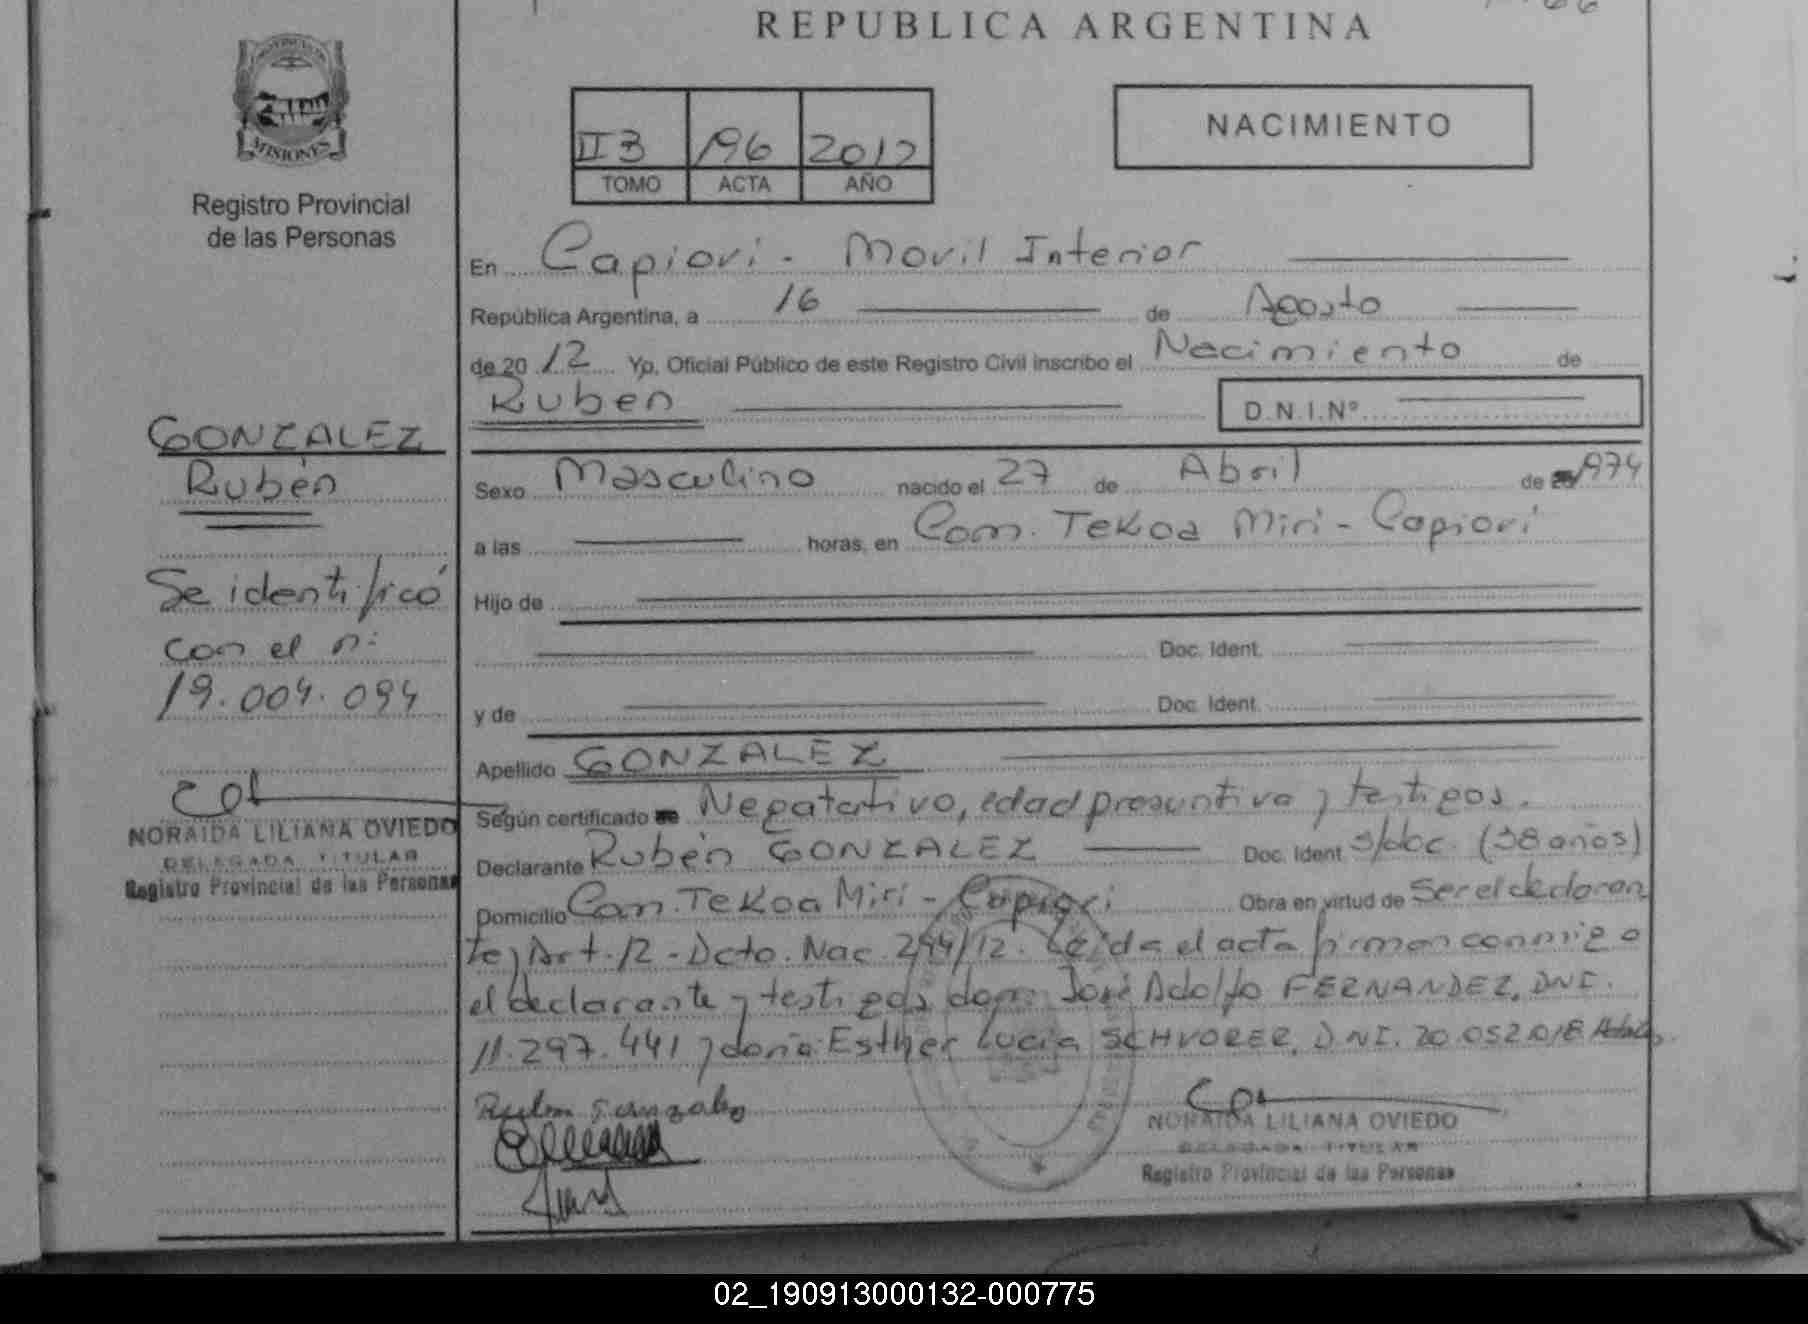 REPUBLICA ARGENTINA
PROVINCIA DE
MISIONES
Registro Provincial
de las Personas
II B 196 2012
TOMO ACTA AÑO
NACIMIENTO
En Capiovi - Movil Interior
República Argentina, a 16 de Agosto
de 2012 Yo, Oficial Público de este Registro Civil inscribo el Nacimiento de
Ruben D.N.I.Nº
GONZALEZ
Rubén
Sexo Masculino nacido el 27 de Abril de 1974
a las horas, en Com. Tekoa Miri - Capiovi
Se identificó
con el n:
19.004.094
Hijo de
Doc. Ident.
y de Doc. Ident.
Apellido GONZALEZ
Según certificado de Negatativo, edad presuntiva y testigos.
Declarante Rubén GONZALEZ Doc. Ident s/doc. (38 años)
Domicilio Com. Tekoa Miri - Capiovi Obra en virtud de Ser el declaran
te y Art. 12 - Dcto. Nac. 294/12. Leída el acta firman conmigo
el declarante y testigos don: José Adolfo FERNANDEZ, DNI.
11.297.441 y doña: Esther Lucia SCHVORER, D.NI. 20.052.018
Ruben Gonzalez
NORAIDA LILIANA OVIEDO
DELEGADA TITULAR
Registro Provincial de las Personas
NORAIDA LILIANA OVIEDO
DELEGADA TITULAR
Registro Provincial de las Personas
02_190913000132-000775